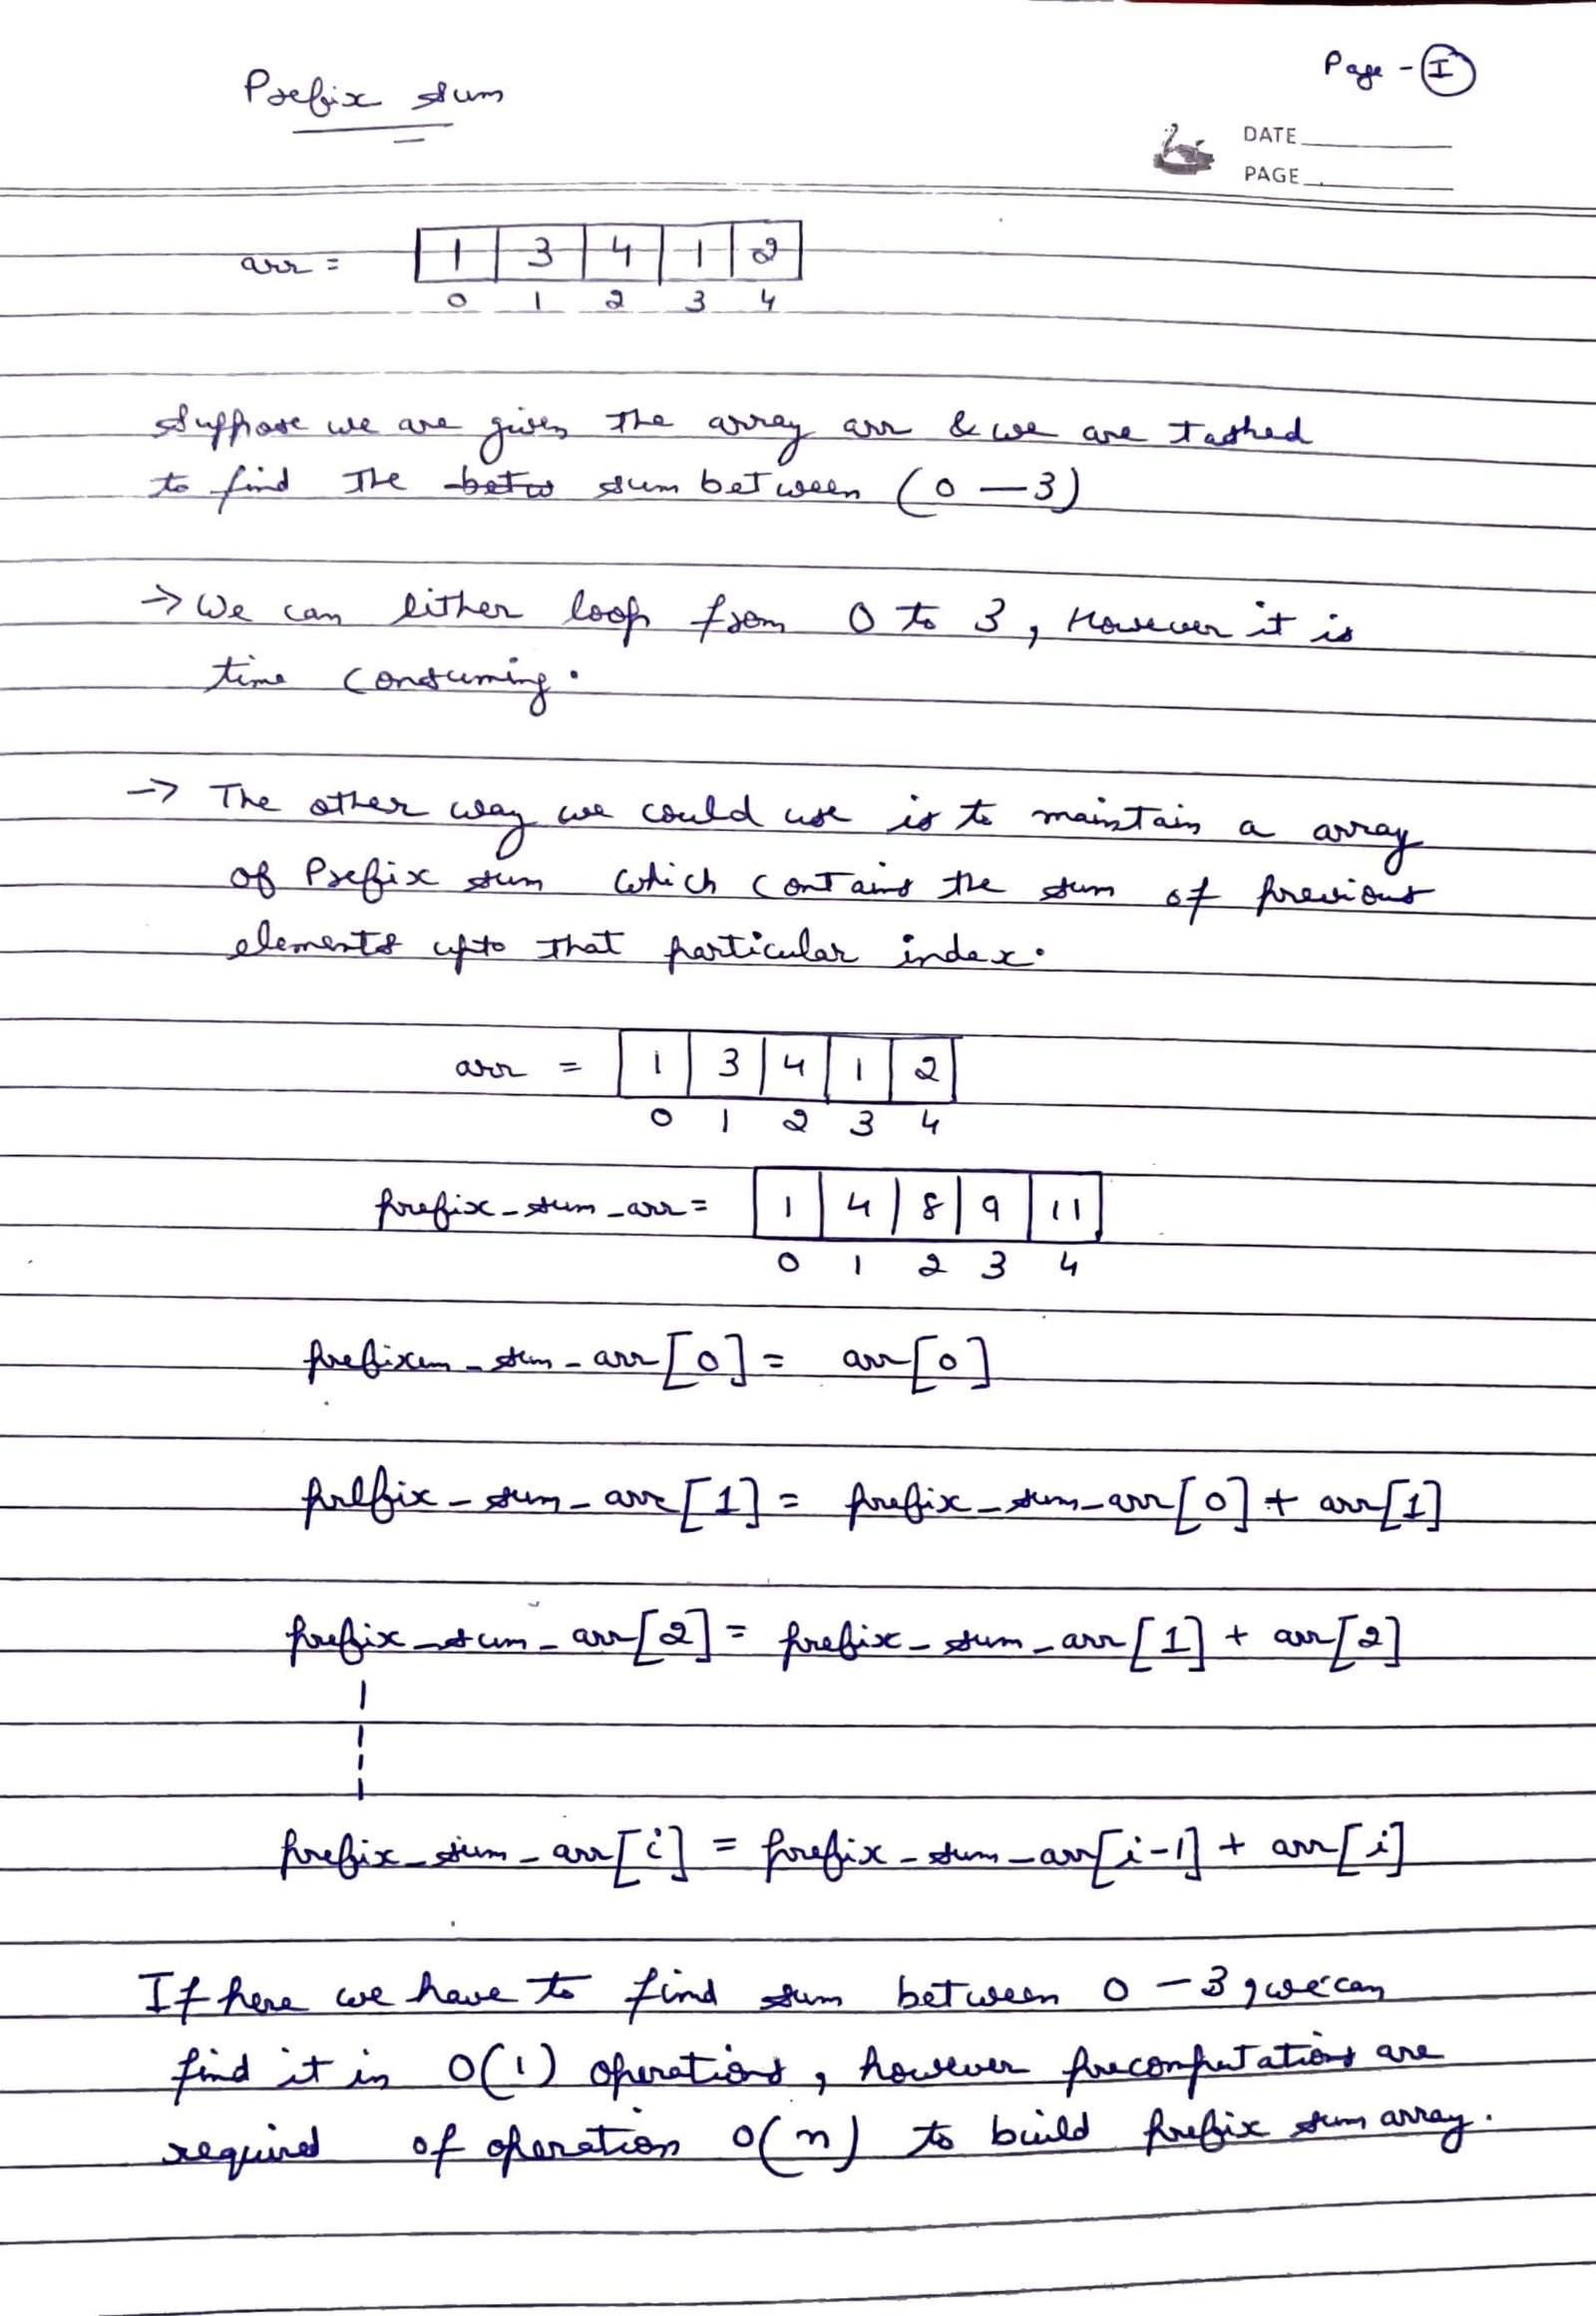 Prefix sum
Page - I
DATE
PAGE
arr = 1 3 4 1 2
0 1 2 3 4
Suppose we are given the array arr & we are tasked
to find the betw sum between (0 — 3)
→ We can either loop from 0 to 3, However it is
time consuming.
→ The other way we could use is to maintain a array
of Prefix sum which contains the sum of previous
elements upto that particular index.
arr = 1 3 4 1 2
0 1 2 3 4
prefix_sum_arr = 1 4 8 9 11
0 1 2 3 4
prefixem_sum_arr[0] = arr[0]
prefix_sum_arr[1] = prefix_sum_arr[0] + arr[1]
prefix_sum_arr[2] = prefix_sum_arr[1] + arr[2]
prefix_sum_arr[i] = prefix_sum_arr[i-1] + arr[i]
If here we have to find sum between 0 - 3, we can
find it in O(1) operations, however precomputations are
required of operation O(n) to build prefix sum array.